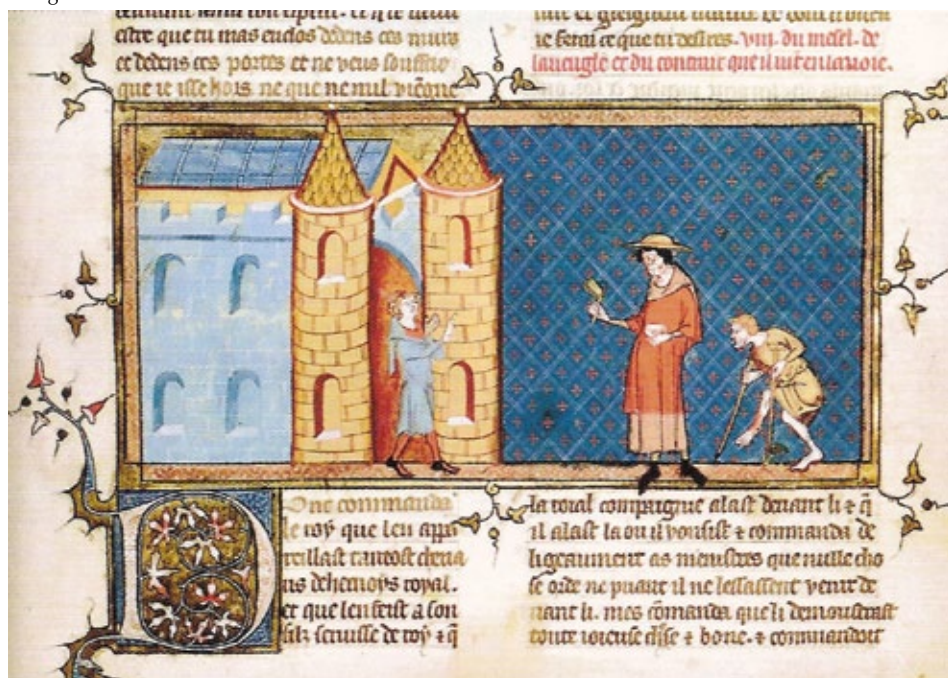 estre que tu mas enclos dedens ces murs
et dedens ces portes et ne veus souffrir
que ie isse hors. ne que ne nul viegne
ie ferai ce que tu desires. viii. du mesel. de
laueugle et du contrait que il vit en la voie.
Donc commanda
le roy que len appa
reillast tantost cheua
us de hernoys royal.
et que len feist a son
filz seruisse de roy & q̃
la roial compaignie alast deuant li & q̃
il alast la ou il vousist & commanda de
ligeaument as menistres que nulle cho
se orde ne puant il ne lessassent venir de
uant li. mes cõmanda que li demoustrast
toute ioieuse chose & bone. & commandoit